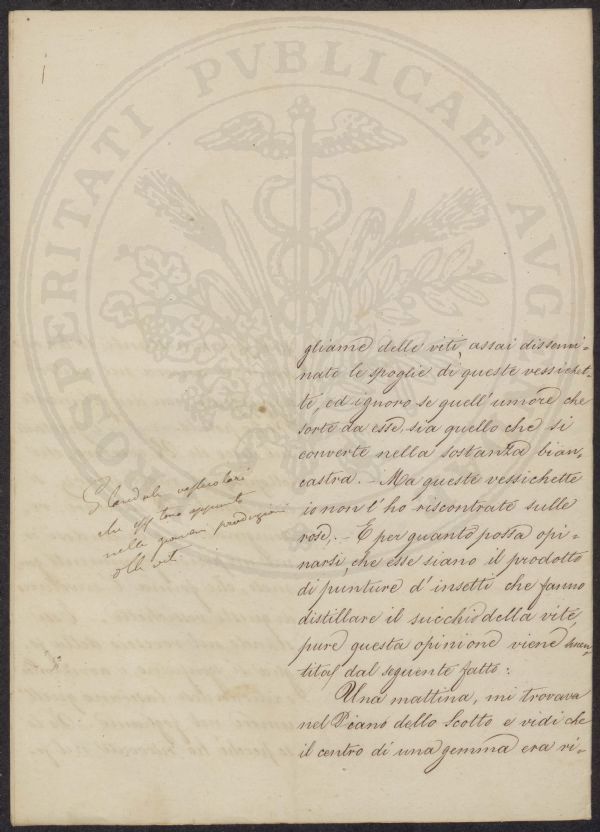 PROSPERITATI PVBLICAE AVGENDAE
gliame delle viti, assai dissemi=
nate le spoglie di queste vessichet=
te, ed ignoro se quell'umore che
sorte da esse, sia quello che si
converte nella sostanza bian,
castra. - Ma queste vessichette
io non l'ho riscontrate sulle
rose. - E per quanto possa opi=
narsi, che esse siano il prodotto
di punture d'insetti che fanno
distillare il succhio della vite,
pure questa opinione viene smen,
tita dal seguente fatto:
Una mattina, mi trovava
nel Piano dello Scotto e vidi che
il centro di una gemma era ri=
Glandole vescicolari
che
nelle giovani produzioni
delle viti